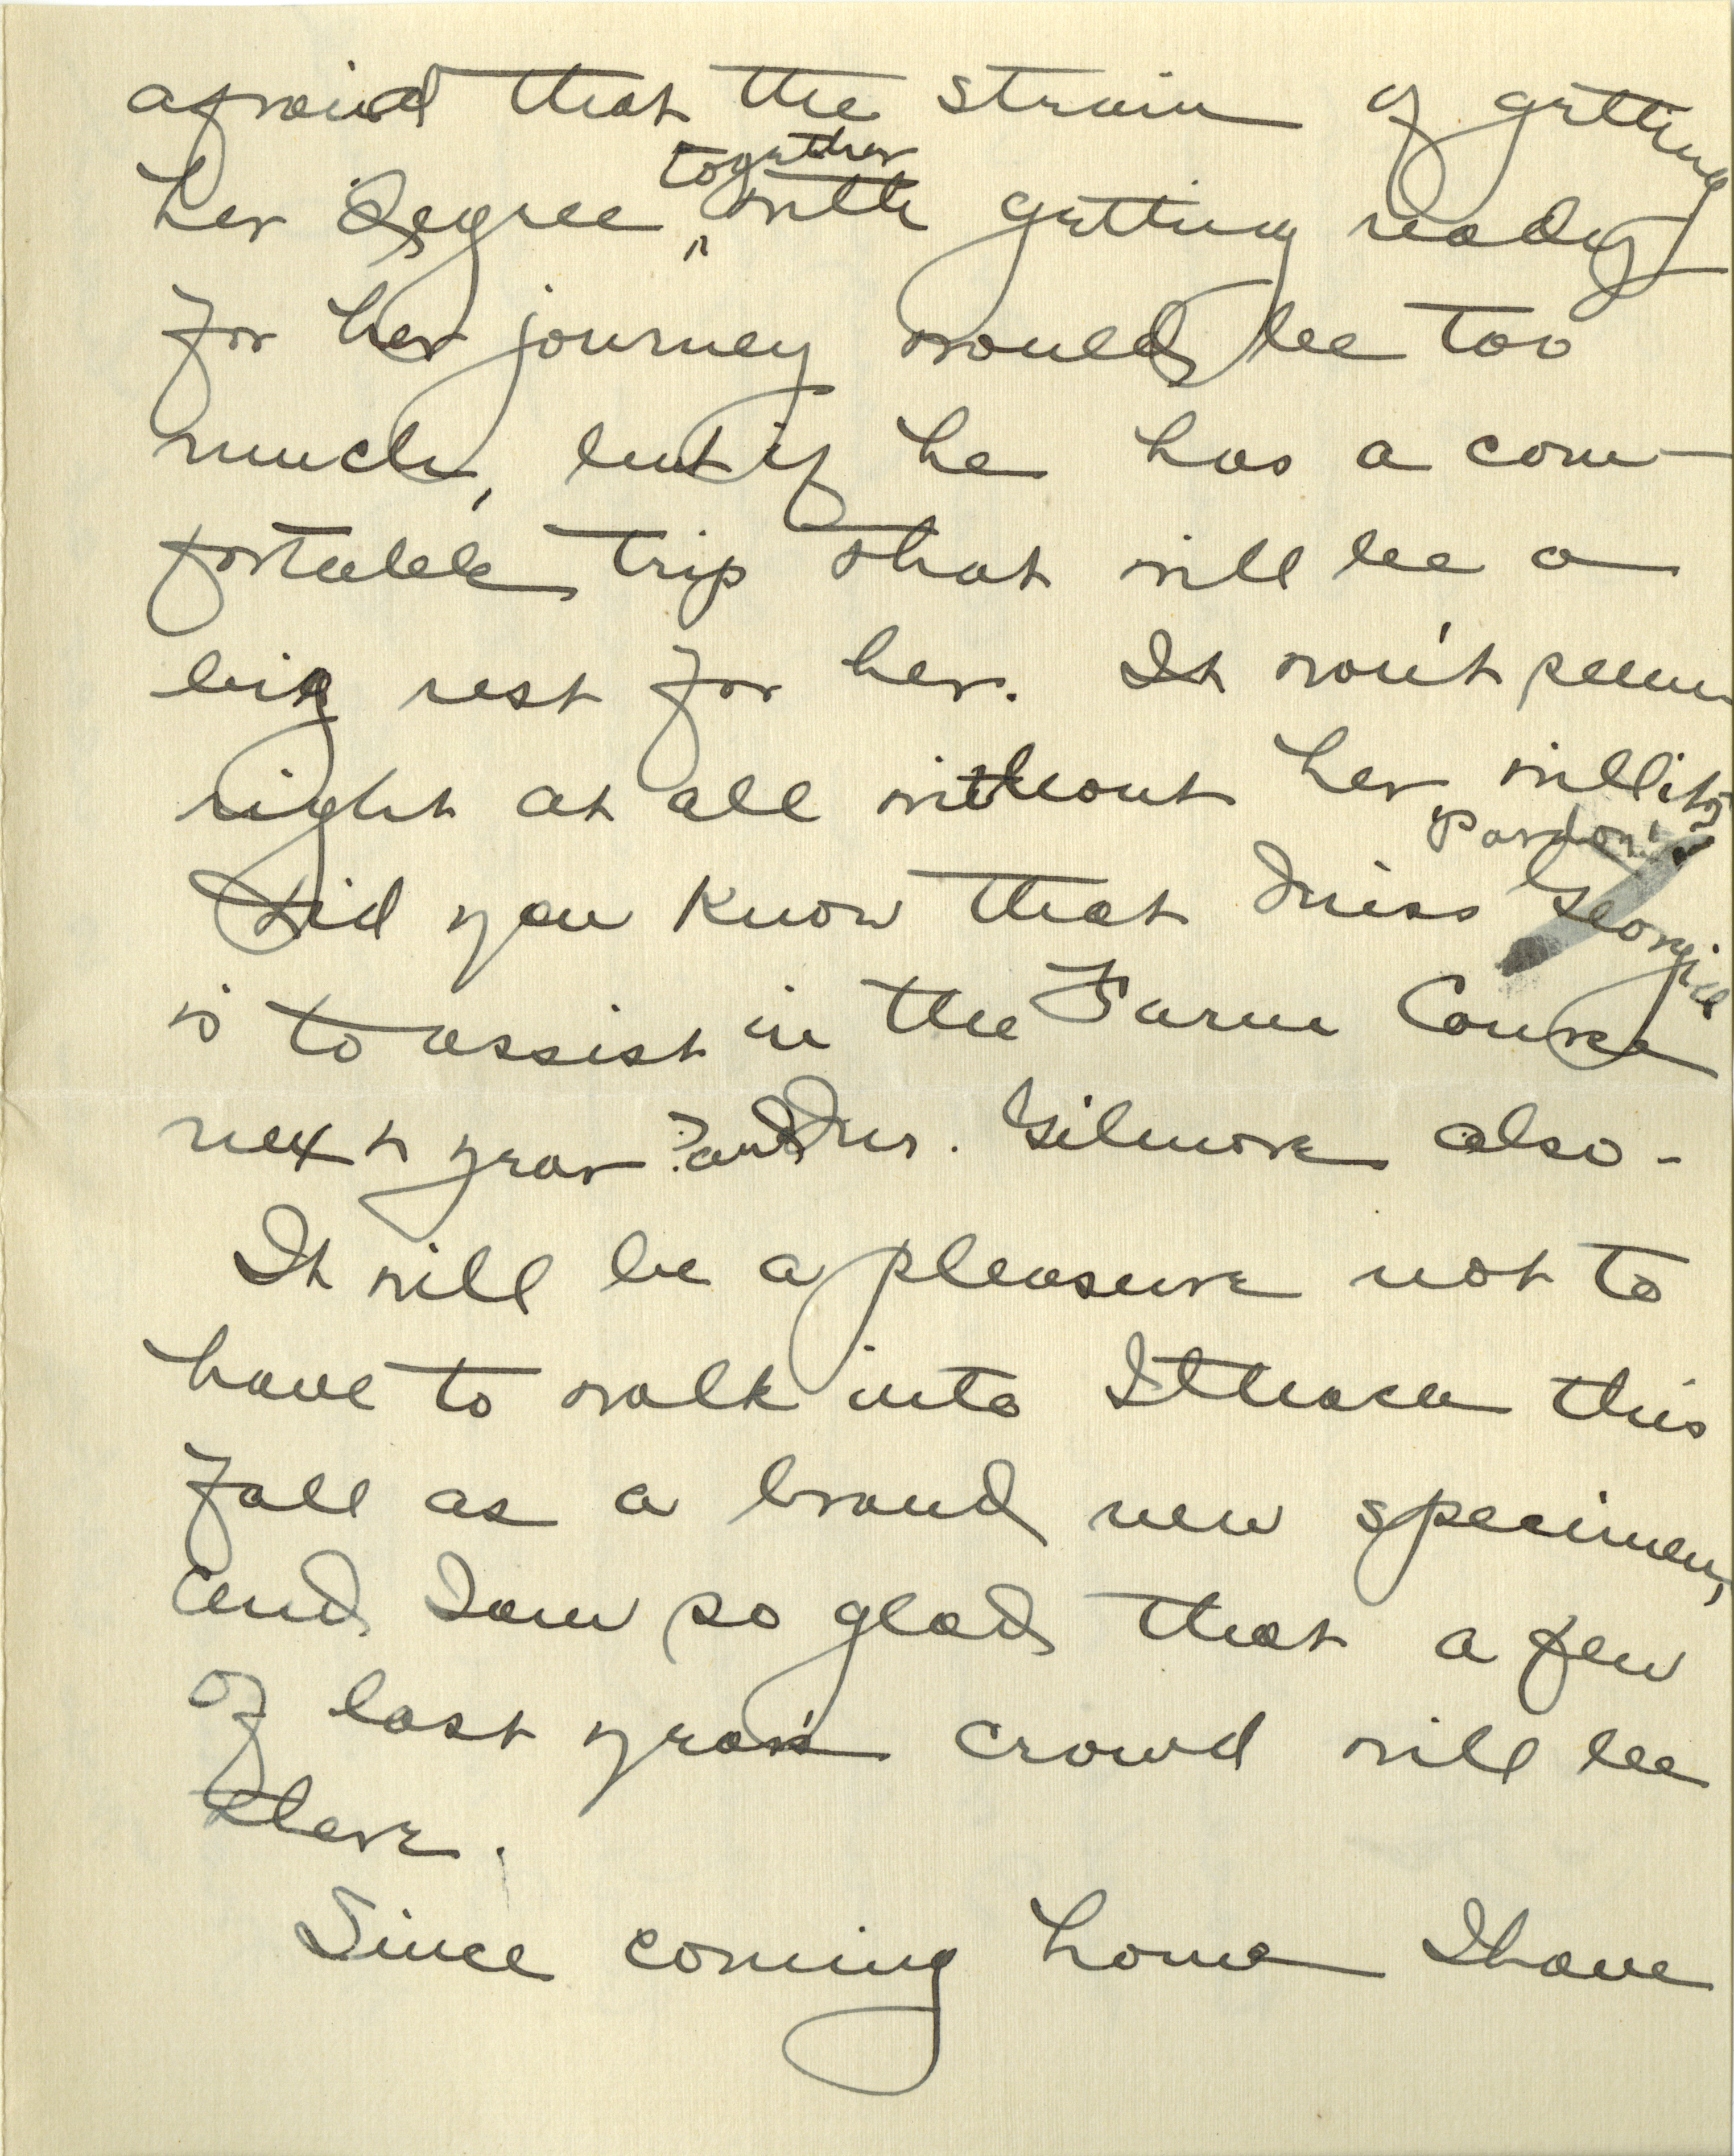 afraid that the strain of getting
together
her degree, with getting ready
for her journey would be too
much, but if he has a com-
fortable trip that will be a
big rest for her. It won't seem
right at all without her will it?
Pardon!
Did you know that Miss Georgia
is to assist in the Farm Course
next year? and Mr. Gilmore also-
It will be a pleasure not to
have to walk into Ithaca this
fall as a brand new specimen,
and I am so glad that a few
of last year's crowd will be
there.
Since coming home I have